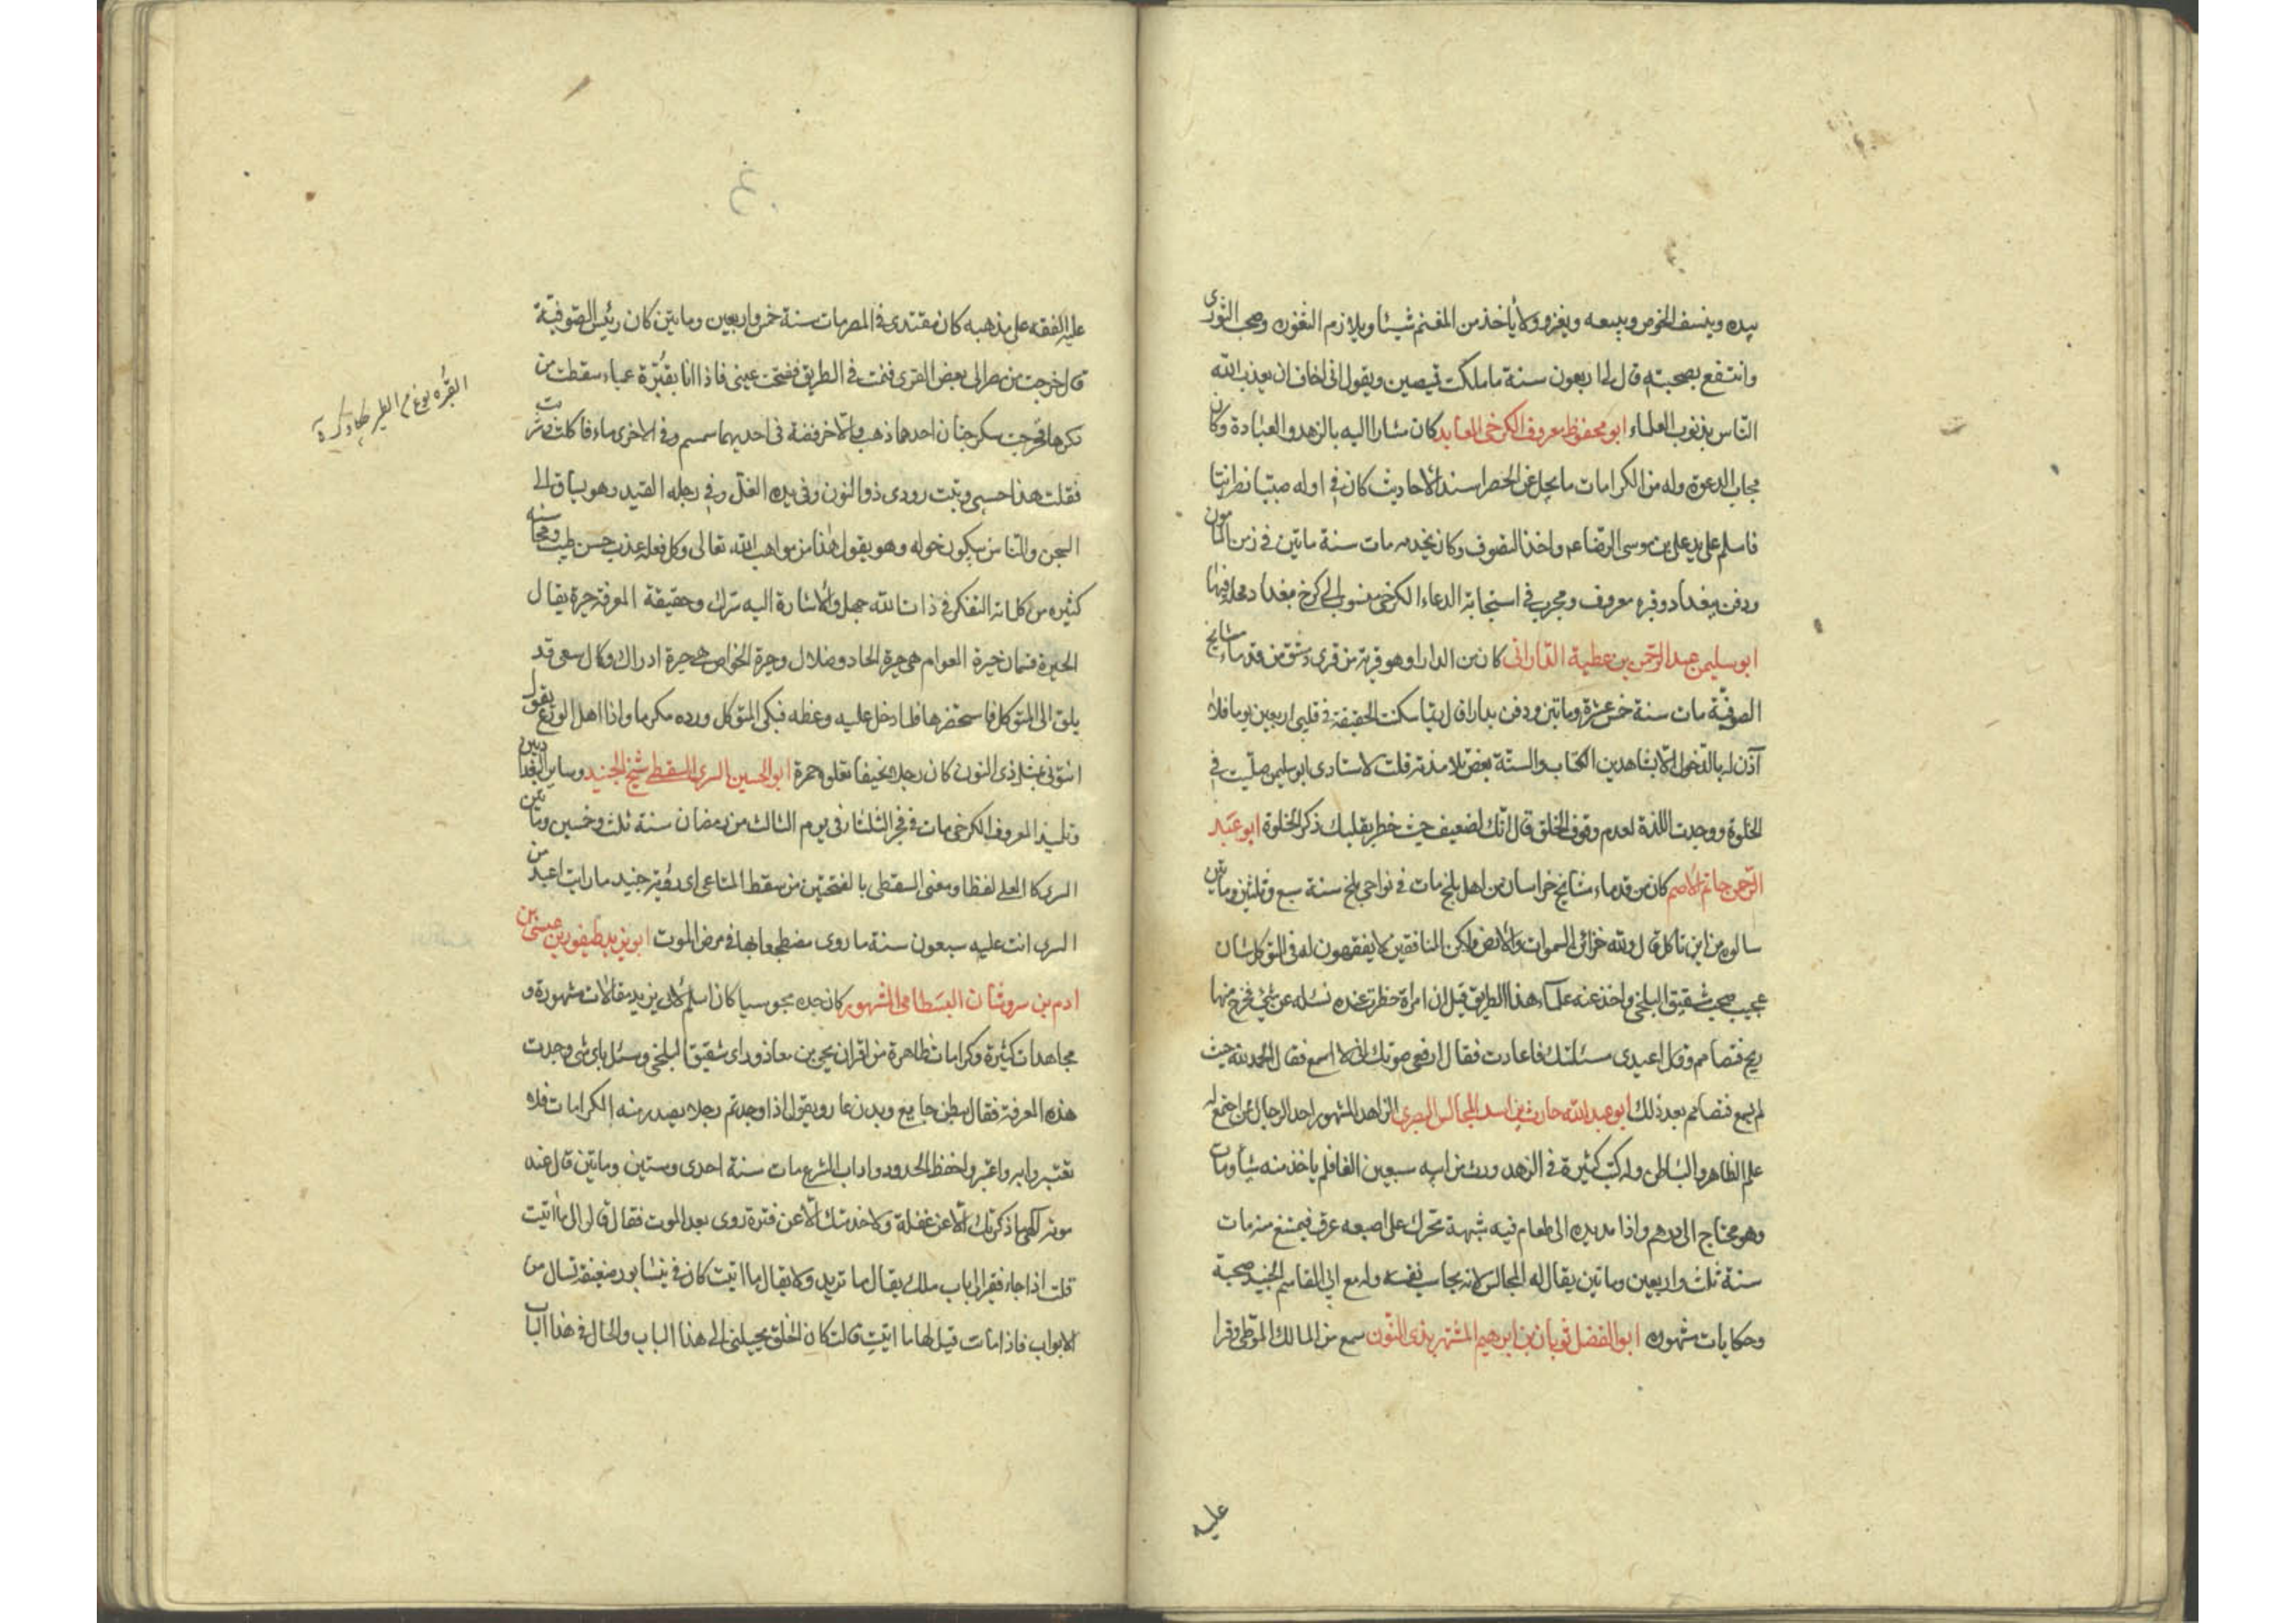 بيده وينسف الخوص ويبيعه ويغزو ولا يأخذ من المغنم شيئا ويلازم الثغور وصحب الثورى
وانتفع بصحبته قال لى اربعون سنة ما ملكت قميصين ويقول انى اخاف ان يعذب الله
الناس بذنوب العلماء ابو محفوظ معروف الكرخى العابد كان مشارا اليه بالزهد والعبادة وكان
مجاب الدعوة وله من الكرامات ما يجل عن الحصر اسند الاحاديث كان فى اوله صبيا نصرانيا
فاسلم على يد على بن موسى الرضا عم واخذ التصوف وكان يخدمه مات سنة ماتين فى زمن المامون
ودفن ببغداد وقبره معروف ومجرب فى استجابة الدعاء الكرخى منسوب الى كرخ بغداد محلة فيها
ابو سليمن عبد الرحمن بن عطية الدارانى كان من الدارا وهو قرية من قرى دمشق من قدماء مشايخ
الصوفية مات سنة خمس عشرة وماتين ودفن بدارا قال ربما سكنت الحقيقة فى قلبى اربعين يوما فلا
آذن له بالدخول الا بشاهدين الكتاب والسنة بعض تلامذته قلت لاستادى ابو سليمن صليت فى
الخلوة ووجدت اللذة لعدم وقوف الخلق قال انك لضعيف حيث خطر بقلبك ذكر الخلوة ابو عبد
الرحمن حاتم الاصم كان من قدماء مشايخ خراسان من اهل بلخ مات فى نواحى بلخ سنة سبع وثلثين وماتين
سالوه من اين تاكل قال ولله خزائن السموات والارض ولكن المنافقين لا يفقهون له فى التوكل شان
عجيب صحب شقيق البلخى واخذ عنه علماء هذا الطريق قيل ان امراة حضرت عنده تسئله عن شئ فخرج منها
ريح فتصامم وقال اعيدى مسئلتك فاعادت فقال ارفعى صوتك انى لا اسمع فقال الحمد لله حيث
لم يسمع فتصامم بعد ذلك ابو عبد الله حارث بن اسد المحاسبى البصرى الزاهد المشهور احد الرجال ممن اجتمع له
علم الظاهر والباطن وله كتب كثيرة فى الزهد ورث من ابيه سبعين الفا فلم ياخذ منه شيأ ومات
وهو محتاج الى درهم واذا مد يده الى طعام فيه شبهة تحرك على اصبعه عرق فيمتنع منه مات
سنة ثلث واربعين وماتين يقال له المحاسبى لانه يحاسب نفسه وله مع ابى القاسم الجنيد صحبة
وحكايات مشهوره ابو الفضل ثوبان بن ابرهيم المشتهر بذى النون سمع من المالك الموطى وقرا
عليه
عليه الفقه على مذهبه كان مقتدى فى المصر مات سنة خمس واربعين وماتين كان رئيس الصوفية
قال خرجت من مصر الى بعض القرى فنمت فى الطريق ففتحت عينى فاذا انا بقبّرة عمياء سقطت من
وكرها فخرجت سكرجتان احدهما ذهب والاخر فضة فى احديهما سمسم وفى الاخرى ماء فاكلت وشربت
فقلت هذا حسبى وتبت رودى ذو النون وفى يده الغل وفى رجله القيد وهو يساق الى
السجن والناس يبكون حوله وهو يقول هذا من مواهب الله تعالى وكل فعله عذب حسن طيب ومحاسنه
كثيره من كلماته التفكر فى ذات الله جهل والاشارة اليه شرك وحقيقة المعرفة حيرة يقال
الحيرة قسمان حيرة العوام هى حيرة الحاد وضلال وحيرة الخواص هى حيرة ادراك وكال سعى قد
يلق الى المتوكل فاستحضرها فلما دخل عليه وعظه فبكى المتوكل ورده مكرما واذا اهل الورع يقول
ائتونى بمثل ذى النون كان رجلا نحيفا تعلوه حمرة ابو الحسين السرى السقطى شيخ الجنيد وساير البغداديين
وتلميذ المعروف الكرخى مات فى فجر الثلثاء فى يوم الثالث من رمضان سنة ثلث وخمسين وماتين
السرى كالعلى لفظا ومعنى السقطى بالفتحتين من سقط المتاع اى رؤية جنيد ما رايت اعبد من
السرى اتت عليه سبعون سنة ما روى مضطجعا الا فى مرض الموت ابو يزيد طيفور بن عيسى بن
ادم بن سروشان البسطامى المشهور كان جده مجوسيا كان اسلم لابى يزيد مقالات مشهورة و
مجاهدات كثيرة وكرامات ظاهرة من اقران يحيى بن معاذ وراى شقيق البلخى وسئل باى شى وجدت
هذه المعرفة فقال ببطن جايع وبدن عار ويقول اذا وجدتم رجلا يصدر منه الكرامات فلا
تغتبروا به واعتبروا حفظ الحدود واداب الشرع مات سنة احدى وستين وماتين قال عند
موته الهى ما ذكرتك الا عن غفلة ولا خدمتك الا عن فترة روى بعد الموت فقال قالوا لى ما اتيت
قلت اذا جاء فقير الى باب ملك يقال ما تريد ولا يقال ما اتيت كان فى نيشابور ضعيفة تسال من
الابواب فاذا ماتت قيل لها ما اتيت قالت كان الخلق يحيلنى الى هذا الباب والحال فى هذا الباب